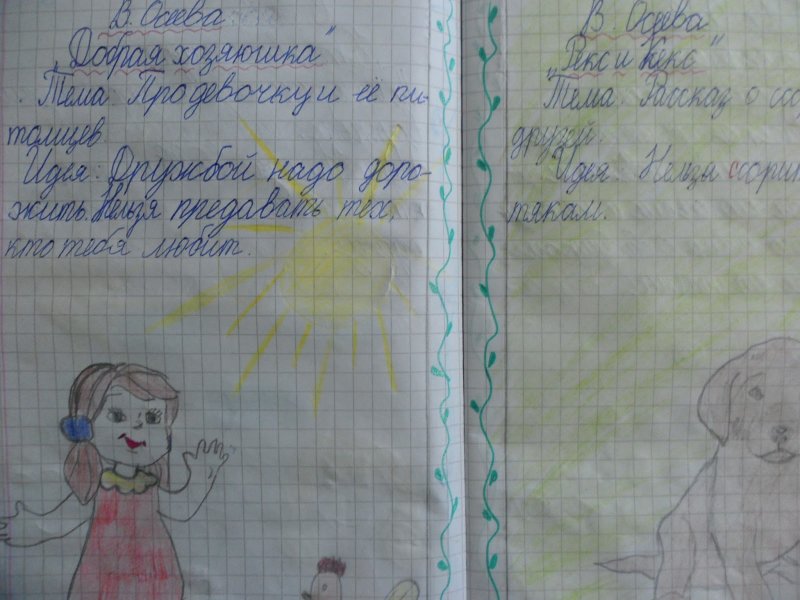 В. Осеева
„Добрая хозяюшка"
Тема: Про девочку и её пи-
томцев.
Идея: Дружбой надо доро-
жить. Нельзя предавать тех,
кто тебя любит.
В. Осеева
„Рекс и Кекс"
Тема: Рассказ о
друзей.
Идея: Нельзя
тякам.